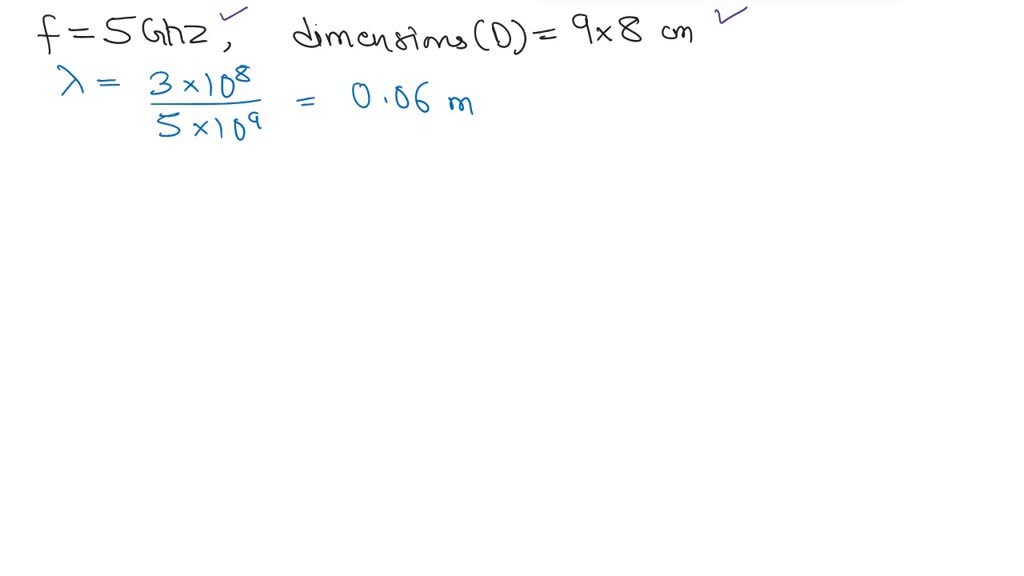 f = 5 Ghz, dimensions (D) = 9x8 cm
λ = 3 × 10⁸ / 5 × 10⁹ = 0.06 m